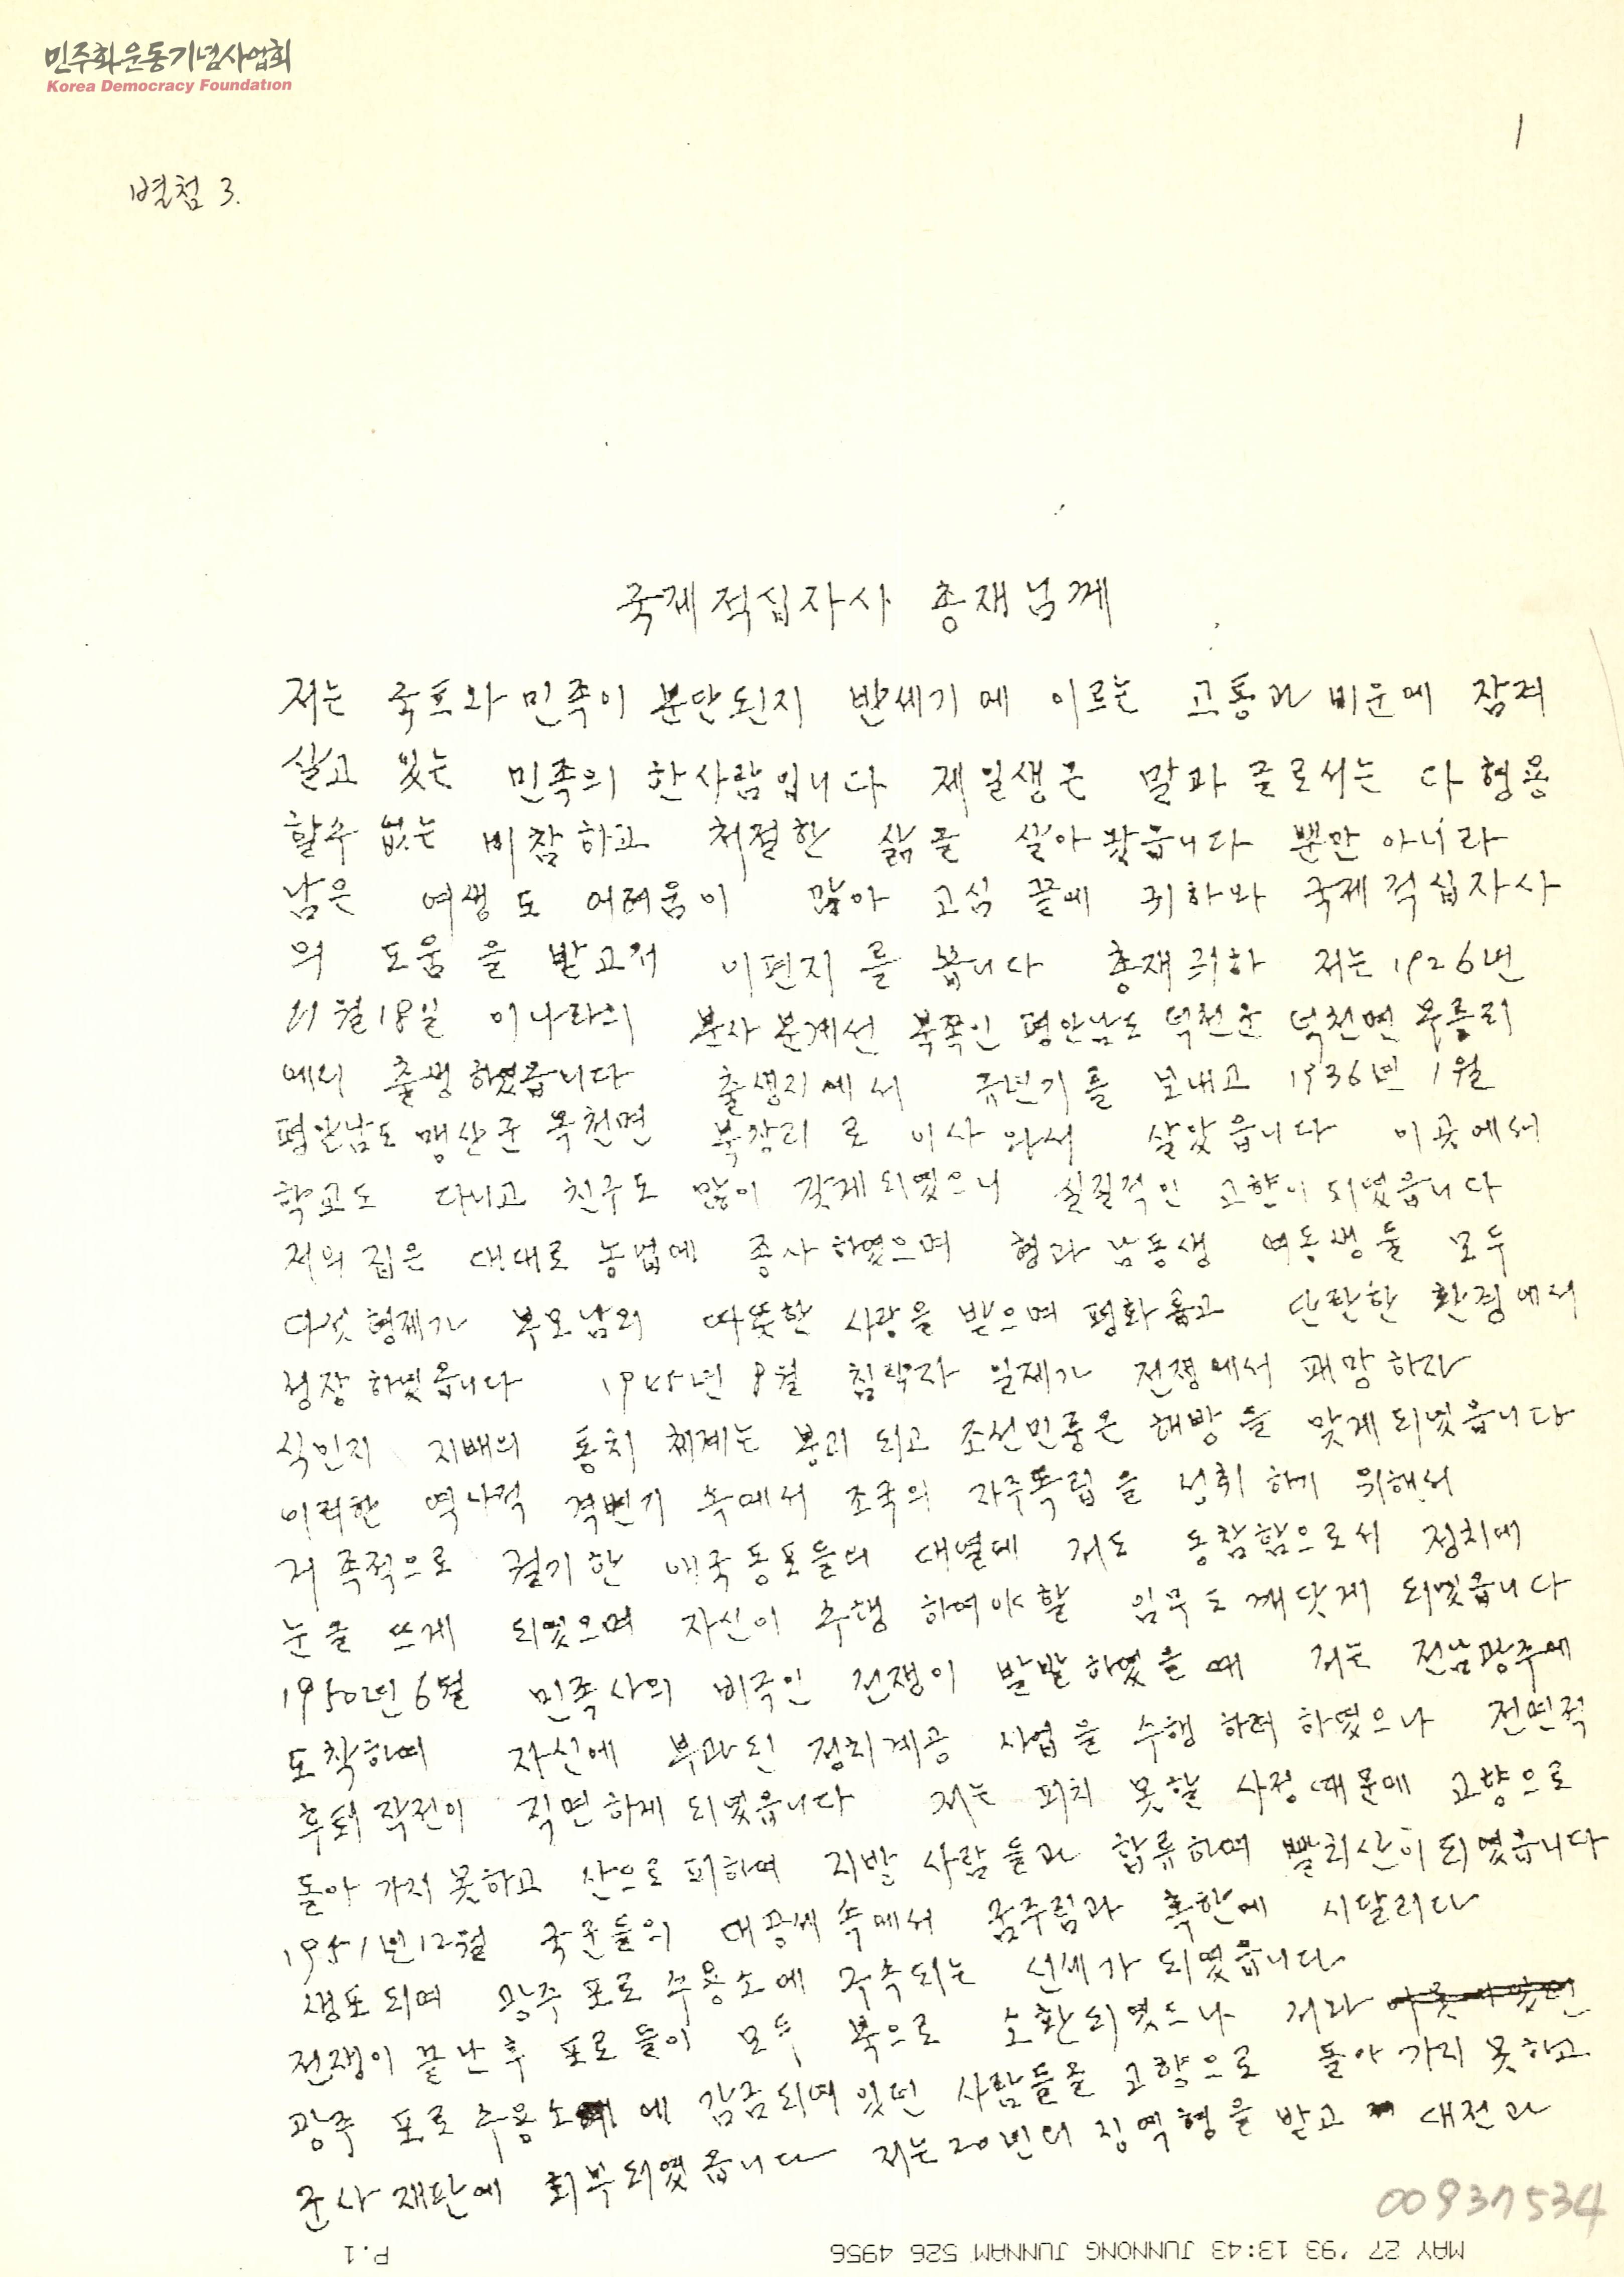 민주화운동기념사업회
Korea Democracy Foundation
1
별첨 3.
국제적십자사 총재님께
저는 국토와 민족이 분단된지 반세기에 이르는 고통과 비운에 잠겨
살고 있는 민족의 한사람입니다 제일생은 말과 글로서는 다 형용
할수 없는 비참하고 처절한 삶을 살아 왔읍니다 뿐만 아니라
남은 여생도 어려움이 많아 고심 끝에 귀하와 국제적십자사
의 도움을 받고저 이편지를 씁니다 총재귀하 저는 1926년
11월18일 이나라의 분사분계선 북쪽인 평안남도 덕천군 덕천면
에서 출생하였읍니다 출생지에서 유년기를 보내고 1936년 1월
평안남도 맹산군 옥천면 북창리로 이사와서 살았읍니다 이곳에서
학교도 다니고 친구도 많이 갖게되였으니 실질적인 고향이되였읍니다
저의집은 대대로 농업에 종사하였으며 형과 남동생 여동생둘 모두
다섯형제가 부모님의 따뜻한 사랑을 받으며 평화롭고 단란한 환경에서
성장하였읍니다 1945년 8월 침략자 일제가 전쟁에서 패망하자
식민지 지배의 통치 체계는 붕괴되고 조선민중은 해방을 맞게되였읍니다
이러한 역사적 격변기 속에서 조국의 자주독립을 성취하기 위해서
거족적으로 궐기한 애국동포들의 대열에 저도 동참함으로서 정치에
눈을 뜨게 되였으며 자신이 수행하여야할 임무도 깨닷게 되였읍니다
1950년6월 민족사의 비극인 전쟁이 발발하였을때 저는 전남광주에
도착하여 자신에 부과된 정치계공 사업을 수행하려 하였으나 전면적
후퇴작전이 직면하게되였읍니다 저는 피치 못할 사정때문에 고향으로
돌아가지못하고 산으로 피하여 지방 사람들과 합류하여 빨치산이되였읍니다
1951년12월 국군들의 대공세속에서 굶주림과 혹한에 시달리다
생포되여 광주포로수용소에 구속되는 신세가 되였읍니다
전쟁이 끝난후 포로들이 모두 북으로 소환되였으나 저와
광주 포로수용소에 감금되여있던 사람들은 고향으로 돌아가지 못하고
군사재판에 회부되였읍니다 저는20년의 징역형을 받고 대전과
00937534
MAY 27 '93 13:43 JUNNONG JUNNAM 526 4956 P.1